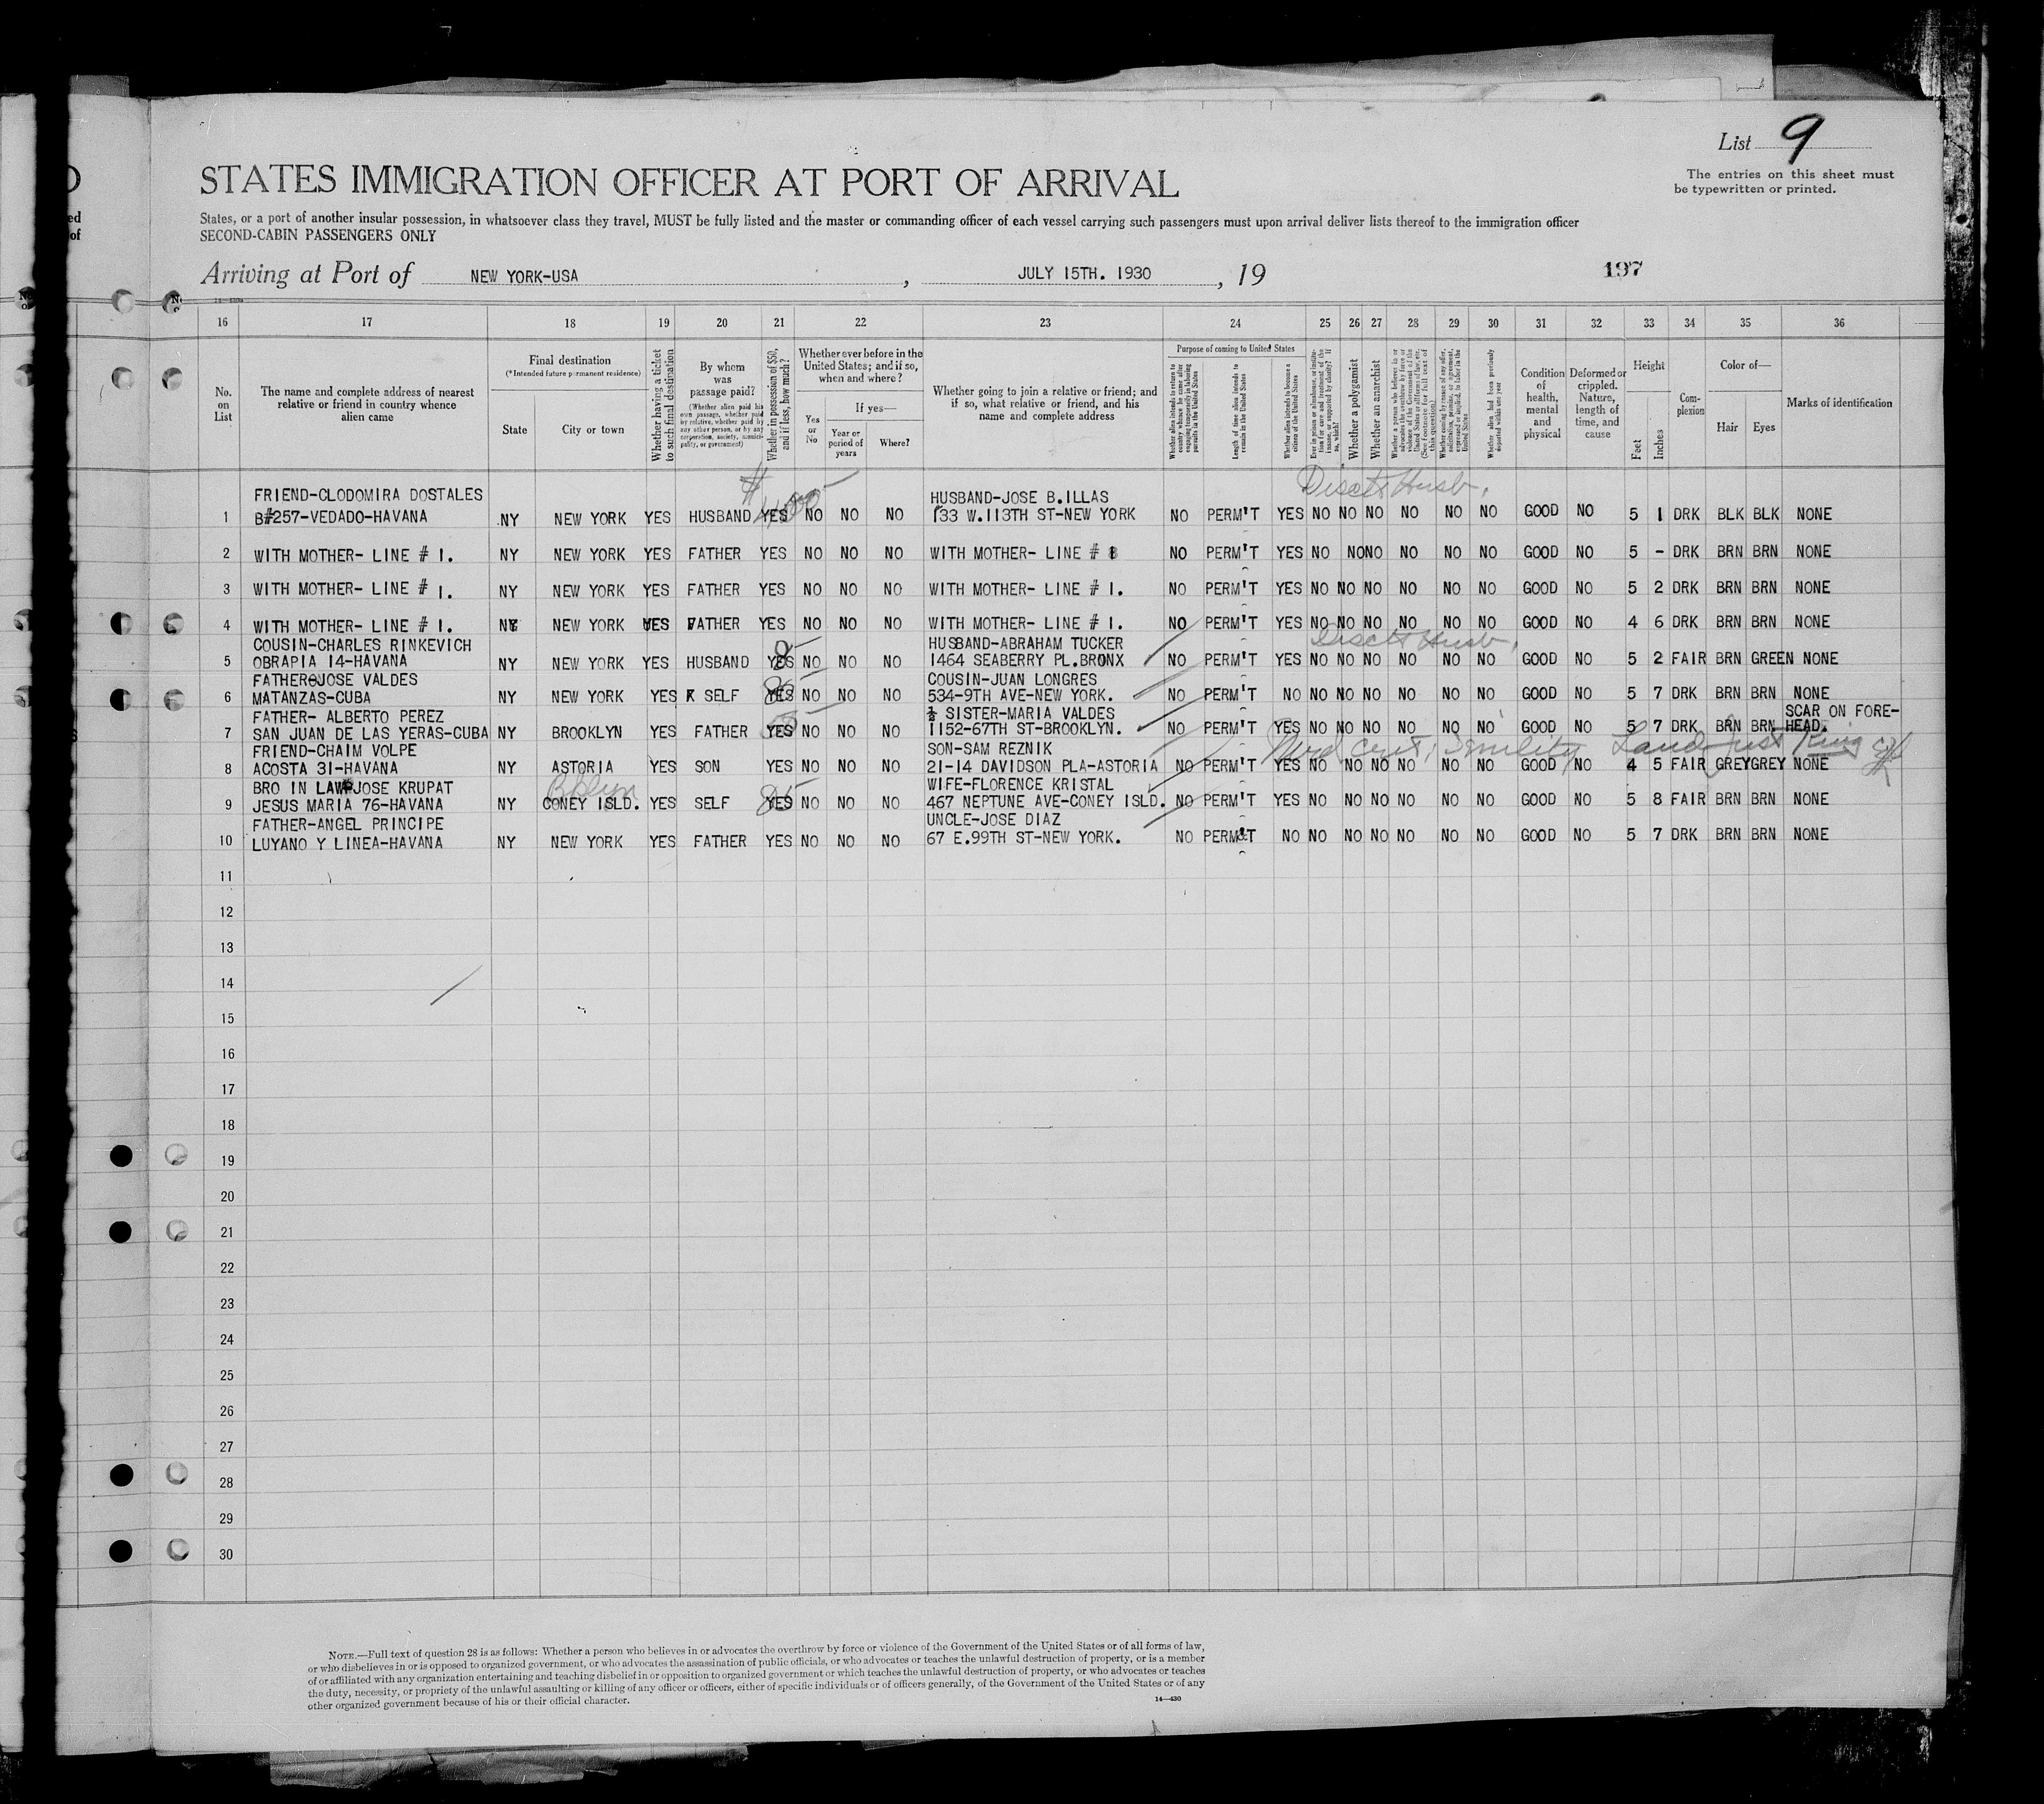 List 9
The entries on this sheet must
be typewritten or printed.
STATES IMMIGRATION OFFICER AT PORT OF ARRIVAL
States, or a port of another insular possession, in whatsoever class they travel, MUST be fully listed and the master or commanding officer of each vessel carrying such passengers must upon arrival deliver lists thereof to the immigration officer
SECOND-CABIN PASSENGERS ONLY
Arriving at Port of NEW YORK-USA , JULY 15TH. 1930 , 19 197
16 17 18 19 20 21 22 23 24 25 26 27 28 29 30 31 32 33 34 35 36
No. on List
The name and complete address of nearest relative or friend in country whence alien came
Final destination
(*Intended future permanent residence)
State City or town
Whether having a ticket to such final destination
By whom was passage paid?
(Whether alien paid his own passage, whether paid by relative, whether paid by any other person, or by any corporation, society, municipality, or government)
Whether in possession of $50, and if less, how much?
Whether ever before in the United States; and if so, when and where?
Yes or No
If yes—
Year or period of years
Where?
Whether going to join a relative or friend; and if so, what relative or friend, and his name and complete address
Purpose of coming to United States
Whether alien intends to return to country whence he came after engaging temporarily in laboring pursuits in the United States
Length of time alien intends to remain in the United States
Whether alien intends to become a citizen of the United States
Ever in prison or almshouse, or institution for care and treatment of the insane, or supported by charity? If so, which?
Whether a polygamist
Whether an anarchist
Whether a person who believes in or advocates the overthrow by force or violence of the Government of the United States or all forms of law, etc. (See footnote for full text of this question)
Whether coming by reason of any offer, solicitation, promise, or agreement, expressed or implied, to labor in the United States
Whether alien had been previously deported within one year
Condition of health, mental and physical
Deformed or crippled. Nature, length of time, and cause
Height
Feet Inches
Complexion
Color of—
Hair Eyes
Marks of identification
FRIEND-CLODOMIRA DOSTALES HUSBAND-JOSE B.ILLAS
1 B#257-VEDADO-HAVANA NY NEW YORK YES HUSBAND YES NO NO NO 133 W.113TH ST-NEW YORK NO PERM'T YES NO NO NO NO NO NO GOOD NO 5 1 DRK BLK BLK NONE
2 WITH MOTHER- LINE # 1. NY NEW YORK YES FATHER YES NO NO NO WITH MOTHER- LINE # NO PERM'T YES NO NO NO NO NO NO GOOD NO 5 - DRK BRN BRN NONE
3 WITH MOTHER- LINE # 1. NY NEW YORK YES FATHER YES NO NO NO WITH MOTHER- LINE # 1. NO PERM'T YES NO NO NO NO NO NO GOOD NO 5 2 DRK BRN BRN NONE
4 WITH MOTHER- LINE # 1. NY NEW YORK YES FATHER YES NO NO NO WITH MOTHER- LINE # 1. NO PERM'T YES NO NO NO NO NO NO GOOD NO 4 6 DRK BRN BRN NONE
COUSIN-CHARLES RINKEVICH HUSBAND-ABRAHAM TUCKER
5 OBRAPIA 14-HAVANA NY NEW YORK YES HUSBAND YES NO NO NO 1464 SEABERRY PL.BRONX NO PERM'T YES NO NO NO NO NO NO GOOD NO 5 2 FAIR BRN GREEN NONE
FATHER-JOSE VALDES COUSIN-JUAN LONGRES
6 MATANZAS-CUBA NY NEW YORK YES SELF YES NO NO NO 534-9TH AVE-NEW YORK. NO PERM'T NO NO NO NO NO NO NO GOOD NO 5 7 DRK BRN BRN NONE
FATHER- ALBERTO PEREZ ½ SISTER-MARIA VALDES SCAR ON FORE-
7 SAN JUAN DE LAS YERAS-CUBA NY BROOKLYN YES FATHER YES NO NO NO 1152-67TH ST-BROOKLYN. NO PERM'T YES NO NO NO NO NO NO GOOD NO 5 7 DRK BRN BRN HEAD.
FRIEND-CHAIM VOLPE SON-SAM REZNIK
8 ACOSTA 31-HAVANA NY ASTORIA YES SON YES NO NO NO 21-14 DAVIDSON PLA-ASTORIA NO PERM'T YES NO NO NO NO NO NO GOOD NO 4 5 FAIR GREY GREY NONE
BRO IN LAW-JOSE KRUPAT Bklyn WIFE-FLORENCE KRISTAL
9 JESUS MARIA 76-HAVANA NY CONEY ISLD. YES SELF YES NO NO NO 467 NEPTUNE AVE-CONEY ISLD. NO PERM'T YES NO NO NO NO NO NO GOOD NO 5 8 FAIR BRN BRN NONE
FATHER-ANGEL PRINCIPE UNCLE-JOSE DIAZ
10 LUYANO Y LINEA-HAVANA NY NEW YORK YES FATHER YES NO NO NO 67 E.99TH ST-NEW YORK. NO PERM'T NO NO NO NO NO NO NO GOOD NO 5 7 DRK BRN BRN NONE
11
12
13
14
15
16
17
18
19
20
21
22
23
24
25
26
27
28
29
30
NOTE.—Full text of question 28 is as follows: Whether a person who believes in or advocates the overthrow by force or violence of the Government of the United States or of all forms of law,
or who disbelieves in or is opposed to organized government, or who advocates the assassination of public officials, or who advocates or teaches the unlawful destruction of property, or is a member
of or affiliated with any organization entertaining and teaching disbelief in or opposition to organized government or which teaches the unlawful destruction of property, or who advocates or teaches
the duty, necessity, or propriety of the unlawful assaulting or killing of any officer or officers, either of specific individuals or of officers generally, of the Government of the United States or of any
other organized government because of his or their official character.
14—430